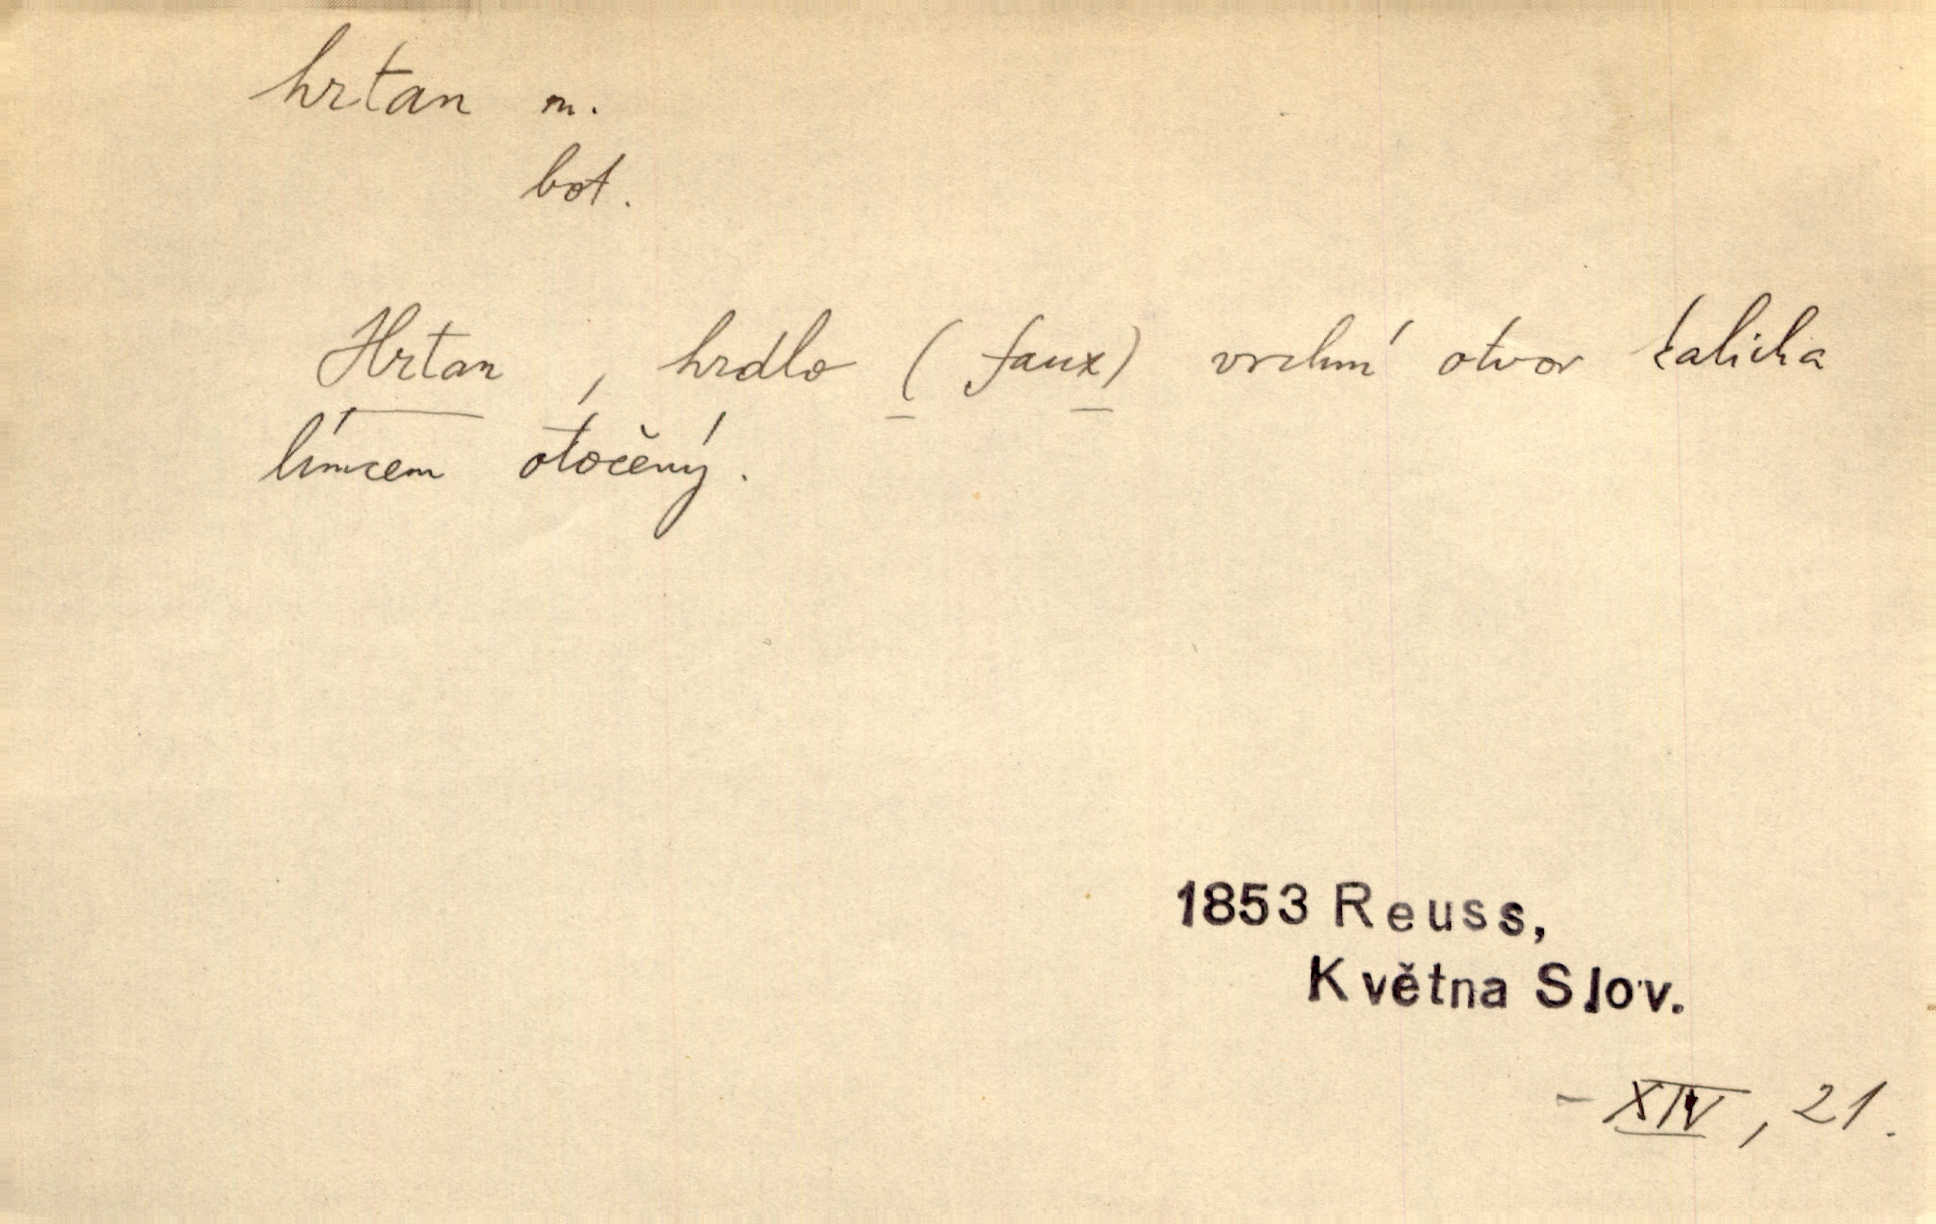 hrtan m.
bot.
Hrtan, hrdlo (faux) vrchní otvor kalicha
límcem otočený.
1853 Reuss,
Května Slov.
- XIV, 21.